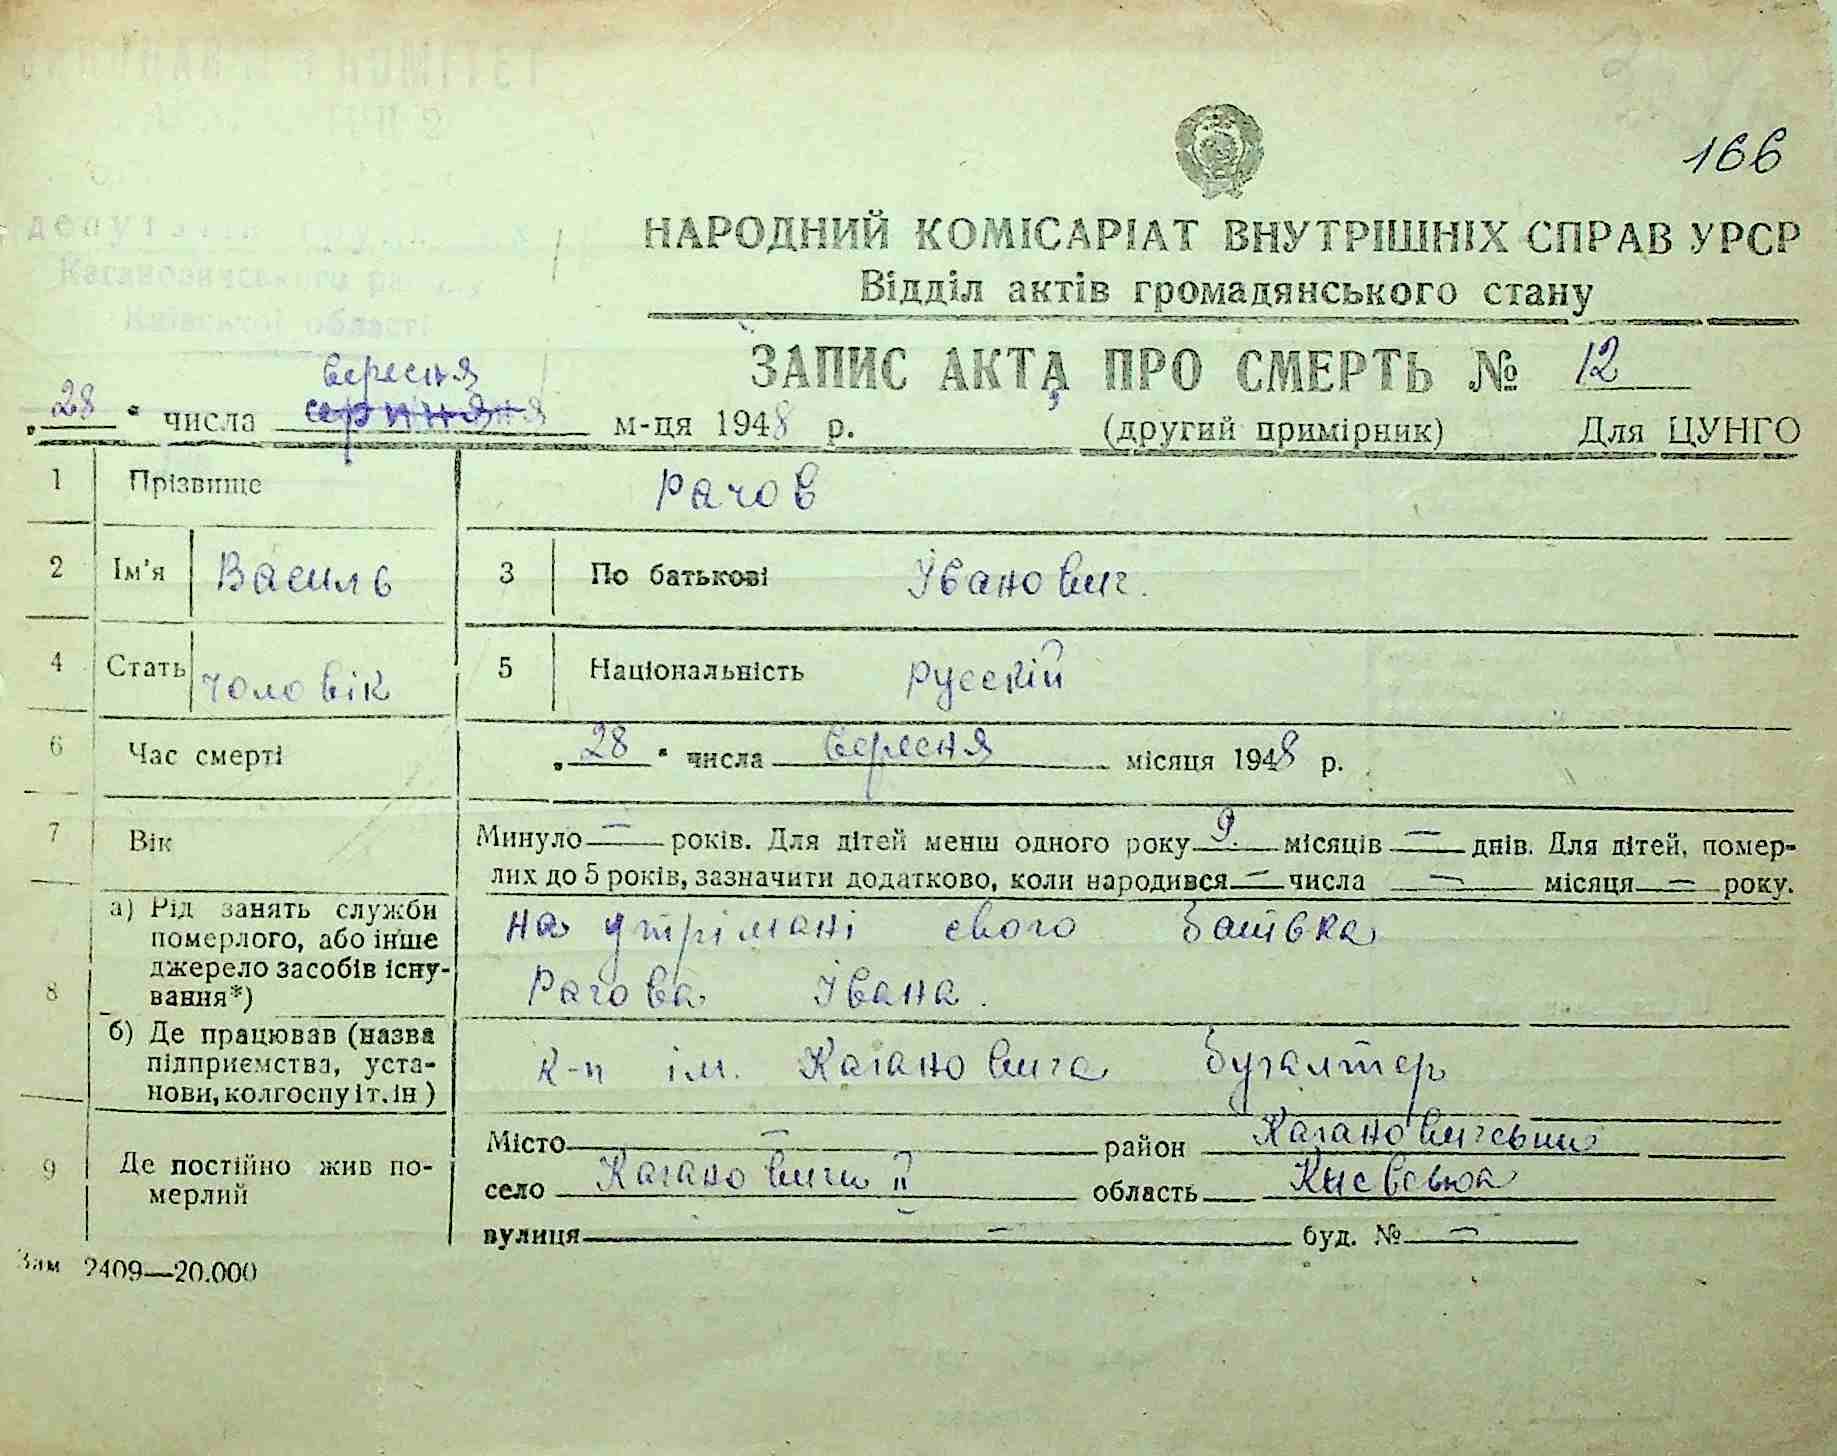 166
НАРОДНИЙ КОМІСАРІАТ ВНУТРІШНІХ СПРАВ УРСР
Відділ актів громадянського стану
депутатів
Кагановичського району
Київської області
ЗАПИС АКТА ПРО СМЕРТЬ № 12
вересня
„28“ числа серпня м-ця 1948 р. (другий примірник) Для ЦУНГО
1 Прізвище Рачов
2 Ім'я Василь 3 По батькові Іванович.
4 Стать чоловік 5 Національність русскій
6 Час смерті „28“ числа вересня місяця 1948 р.
7 Вік Минуло — років. Для дітей менш одного року 9. місяців — днів. Для дітей, помер-
лих до 5 років, зазначити додатково, коли народився — числа — місяця — року.
8 а) Рід занять служби померлого, або інше джерело засобів існу-вання*) на утрімані свого батька
Рачова Івана.
б) Де працював (назва підприємства, уста-нови, колгоспу і т. ін) к-п ім. Кагановича бугалтер
9 Де постійно жив по-мерлий Місто — район Кагановичський
село Кагановичи II область Києвська
вулиця — буд. № —
Зам 2409—20.000